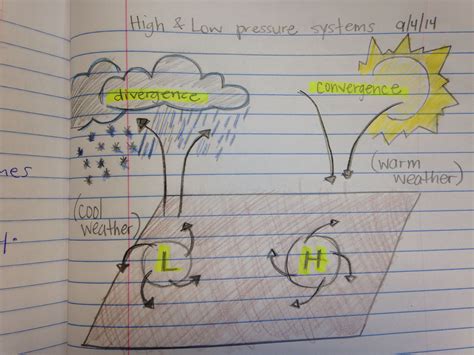 High & Low pressure systems 9/4/14
divergence
convergence
(warm
weather)
(cool
weather)
L
H